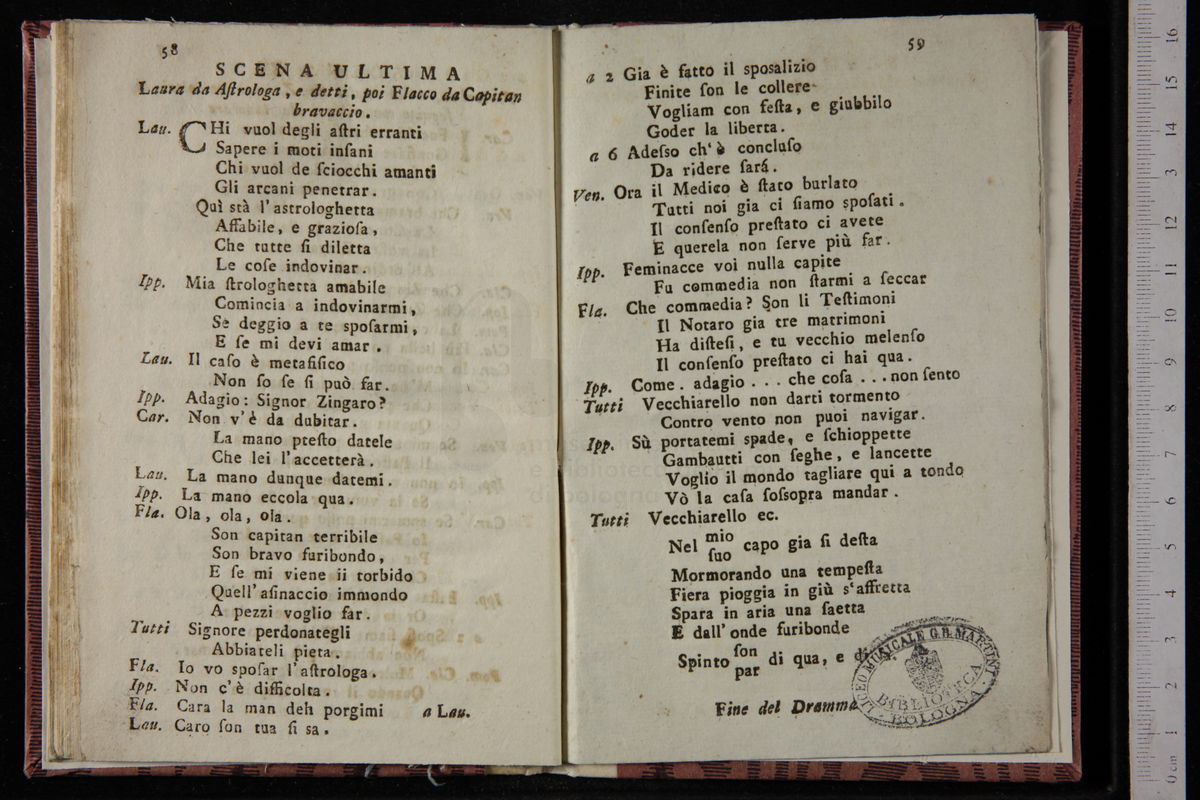 58
SCENA ULTIMA
Laura da Aſtrologa, e detti, poi Flacco da Capitan
bravaccio.
Lau. CHi vuol degli aſtri erranti
Sapere i moti inſani
Chi vuol de ſciocchi amanti
Gli arcani penetrar.
Quì stà l'astrologhetta
Affabile, e grazioſa,
Che tutte ſi diletta
Le coſe indovinar.
Ipp. Mia ſtrologhetta amabile
Comincia a indovinarmi,
Se deggio a te spoſarmi,
E ſe mi devi amar.
Lau. Il caſo è metafiſico
Non ſo ſe ſi può far.
Ipp. Adagio: Signor Zingaro?
Car. Non v'è da dubitar.
La mano pteſto datele
Che lei l'accetterà.
Lau. La mano dunque datemi.
Ipp. La mano eccola qua.
Fla. Ola, ola, ola.
Son capitan terribile
Son bravo furibondo,
E ſe mi viene ii torbido
Quell'aſinaccio immondo
A pezzi voglio far.
Tutti Signore perdonategli
Abbiateli pieta.
Fla. Io vo spoſar l'aſtrologa.
Ipp. Non c'è difficolta.
Fla. Cara la man deh porgimi a Lau.
Lau. Caro ſon tua ſi sa.
59
a 2 Gia è fatto il sposalizio
Finite ſon le collere
Vogliam con feſta, e giubbilo
Goder la liberta.
a 6 Adeſso ch'è concluſo
Da ridere ſará.
Ven. Ora il Medico è ſtato burlato
Tutti noi gia ci ſiamo spoſati.
Il conſenſo preſtato ci avete
E querela non ſerve più far.
Ipp. Feminacce voi nulla capite
Fu commedia non ſtarmi a ſeccar
Fla. Che commedia? Son li Teſtimoni
Il Notaro gia tre matrimoni
Ha diſteſi, e tu vecchio melenſo
Il conſenſo preſtato ci hai qua.
Ipp. Come. adagio . . . che coſa . . . non ſento
Tutti Vecchiarello non darti tormento
Contro vento non puoi navigar.
Ipp. Sù portatemi spade, e ſchioppette
Gambautti con ſeghe, e lancette
Voglio il mondo tagliare qui a tondo
Vò la caſa ſoſsopra mandar.
Tutti Vecchiarello ec.
Nel mio
ſuo capo gia ſi deſta
Mormorando una tempeſta
Fiera pioggia in giù s'affretta
Spara in aria una ſaetta
E dall'onde furibonde
Spinto ſon
par di qua, e di
Fine del Dramma
LICEO MUSICALE G.B. MARTINI
BIBLIOTECA
BOLOGNA